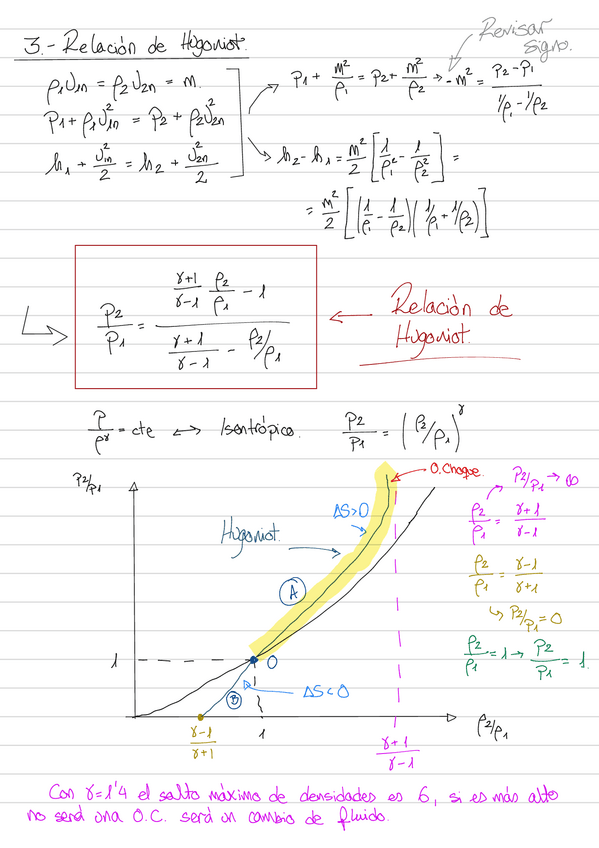 3.- Relación de Hugoniot.
Revisar signo.
ρ₁U₁n = ρ₂U₂n = m.
P₁ + ρ₁U₁n² = P₂ + ρ₂U₂n²
h₁ + U₁n²/2 = h₂ + U₂n²/2
P₁ + m²/ρ₁ = P₂ + m²/ρ₂ → -m² = (P₂-P₁)/(1/ρ₁ - 1/ρ₂)
h₂-h₁ = m²/2 [1/ρ₁² - 1/ρ₂²] =
= m²/2 [(1/ρ₁ - 1/ρ₂)(1/ρ₁ + 1/ρ₂)]
P₂/P₁ = ((γ+1)/(γ-1) ρ₂/ρ₁ - 1)/((γ+1)/(γ-1) - ρ₂/ρ₁)
← Relación de
Hugoniot.
P/ρ^γ = cte ↔ Isentrópica. P₂/P₁ = (ρ₂/ρ₁)^γ
P₂/P₁
O.Choque.
ΔS>0
Hugoniot.
A
1
O
B
ΔS<0
(γ-1)/(γ+1)
1
(γ+1)/(γ-1)
ρ₂/ρ₁
P₂/P₁ → ∞
ρ₂/ρ₁ = (γ+1)/(γ-1)
ρ₂/ρ₁ = (γ-1)/(γ+1)
↳ P₂/P₁ = 0
ρ₂/ρ₁ = 1 → P₂/P₁ = 1.
Con γ=1'4 el salto máximo de densidades es 6, si es más alto
no será una O.C. será un cambio de fluido.